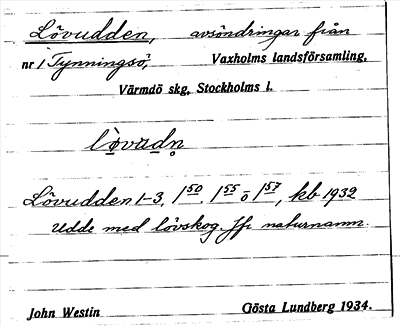 Lövudden, avsöndringar från
nr 1 Tynningsö, Vaxholms landsförsamling,
Värmdö skg, Stockholms l.
lövudn
Lövudden 1-3, 1⁵⁰, 1⁵⁵ o 1⁵⁷, kb 1932
Udde med lövskog. Jfr naturnamn.
John Westin Gösta Lundberg 1934.